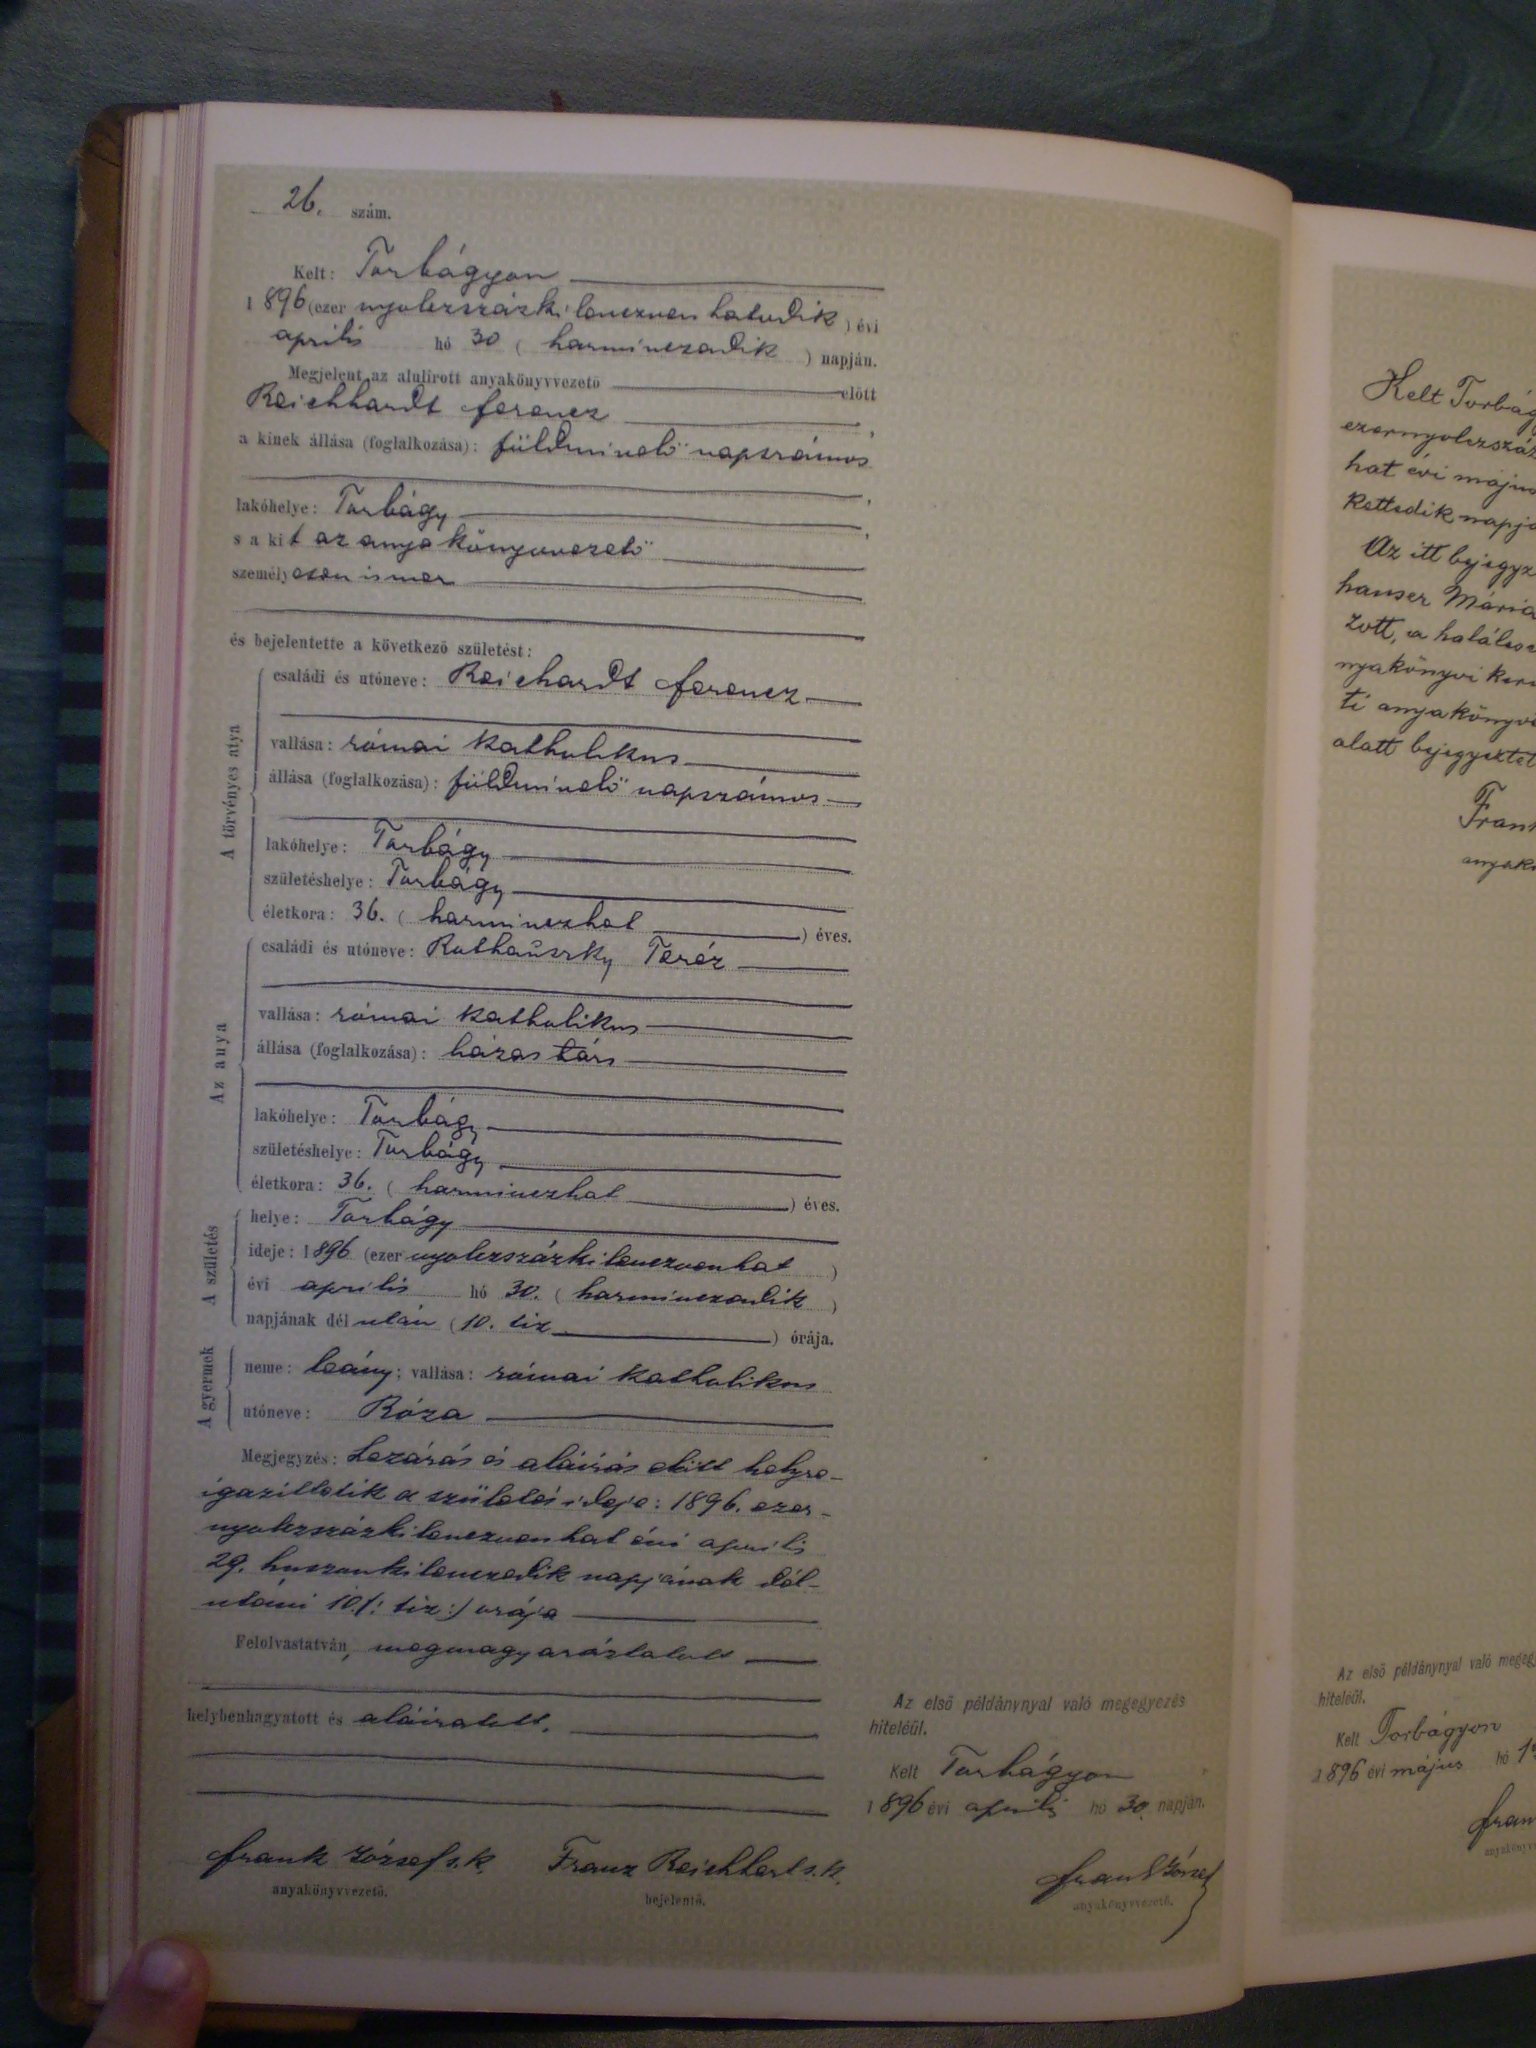 26. szám.
Kelt: Torbágyon
1896 (ezer nyolczszázkilenczven hatodik) évi
április hó 30 (harminczadik) napján.
Megjelent az alulirott anyakönyvvezető előtt
Reichhardt Ferencz,
a kinek állása (foglalkozása): földmívelő napszámos,
lakóhelye: Torbágy,
s a kit az anyakönyvvezető
személyesen ismer
és bejelentette a következő születést:
A törvényes atya
családi és utóneve: Reichardt Ferencz
vallása: római katholikus
állása (foglalkozása): földmívelő napszámos
lakóhelye: Torbágy
születéshelye: Torbágy
életkora: 36. (harminczhat) éves.
Az anya
családi és utóneve: Rothauszky Teréz
vallása: római katholikus
állása (foglalkozása): házastárs
lakóhelye: Torbágy
születéshelye: Torbágy
életkora: 36. (harminczhat) éves.
A születés
helye: Torbágy
ideje: 1896 (ezer nyolczszázkilenczvenhat)
évi április hó 30. (harminczadik)
napjának dél után (10. tiz) órája.
A gyermek
neme: leány; vallása: római katholikus
utóneve: Róza
Megjegyzés: Lezárás és aláírás előtt helyre-
igazittatik a születés ideje: 1896. ezer-
nyolczszázkilenczvenhat évi április
29. huszonkilenczedik napjának dél-
utáni 10./: tiz :/ orája
Felolvastatván, megmagyaráztatott
helybenhagyatott és aláiratott.
Frank József s. k. Franz Reichhert s. k.
anyakönyvvezető. bejelentő.
Az első példánynyal való megegyezés
hiteléül.
Kelt Torbágyon
1896 évi április hó 30 napján.
Frank József
anyakönyvvezető.
Kelt Torbág
ezernyolczszáz
hat évi május
kettedik napjá
Az itt bejegyz
hauser Mária
zott, a halálese
nyakönyvi kerü
ti anyakönyvi
alatt bejegyeztet
Frank
anyakö
Az első példánynyal való megegy
hiteléül.
Kelt Torbágyon
1896 évi május hó
Fran
anyakönyvv